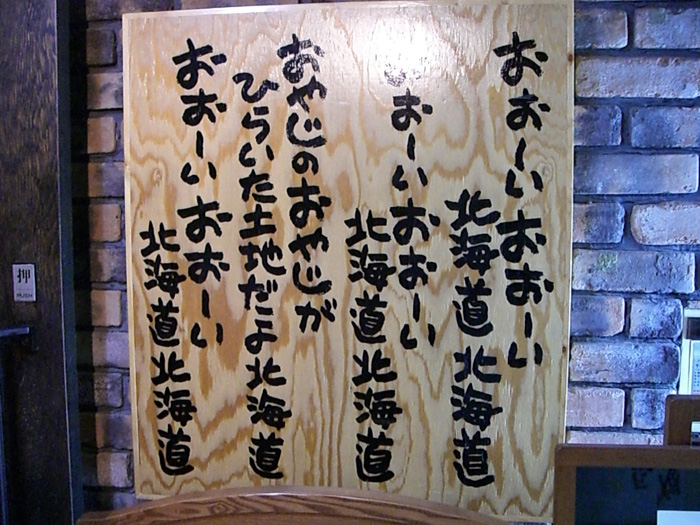 おおーいおおーい
北海道北海道
おおーいおおーい
北海道北海道
おやじのおやじが
ひらいた土地だよ北海道
おおーいおおーい
北海道北海道
押
PUSH